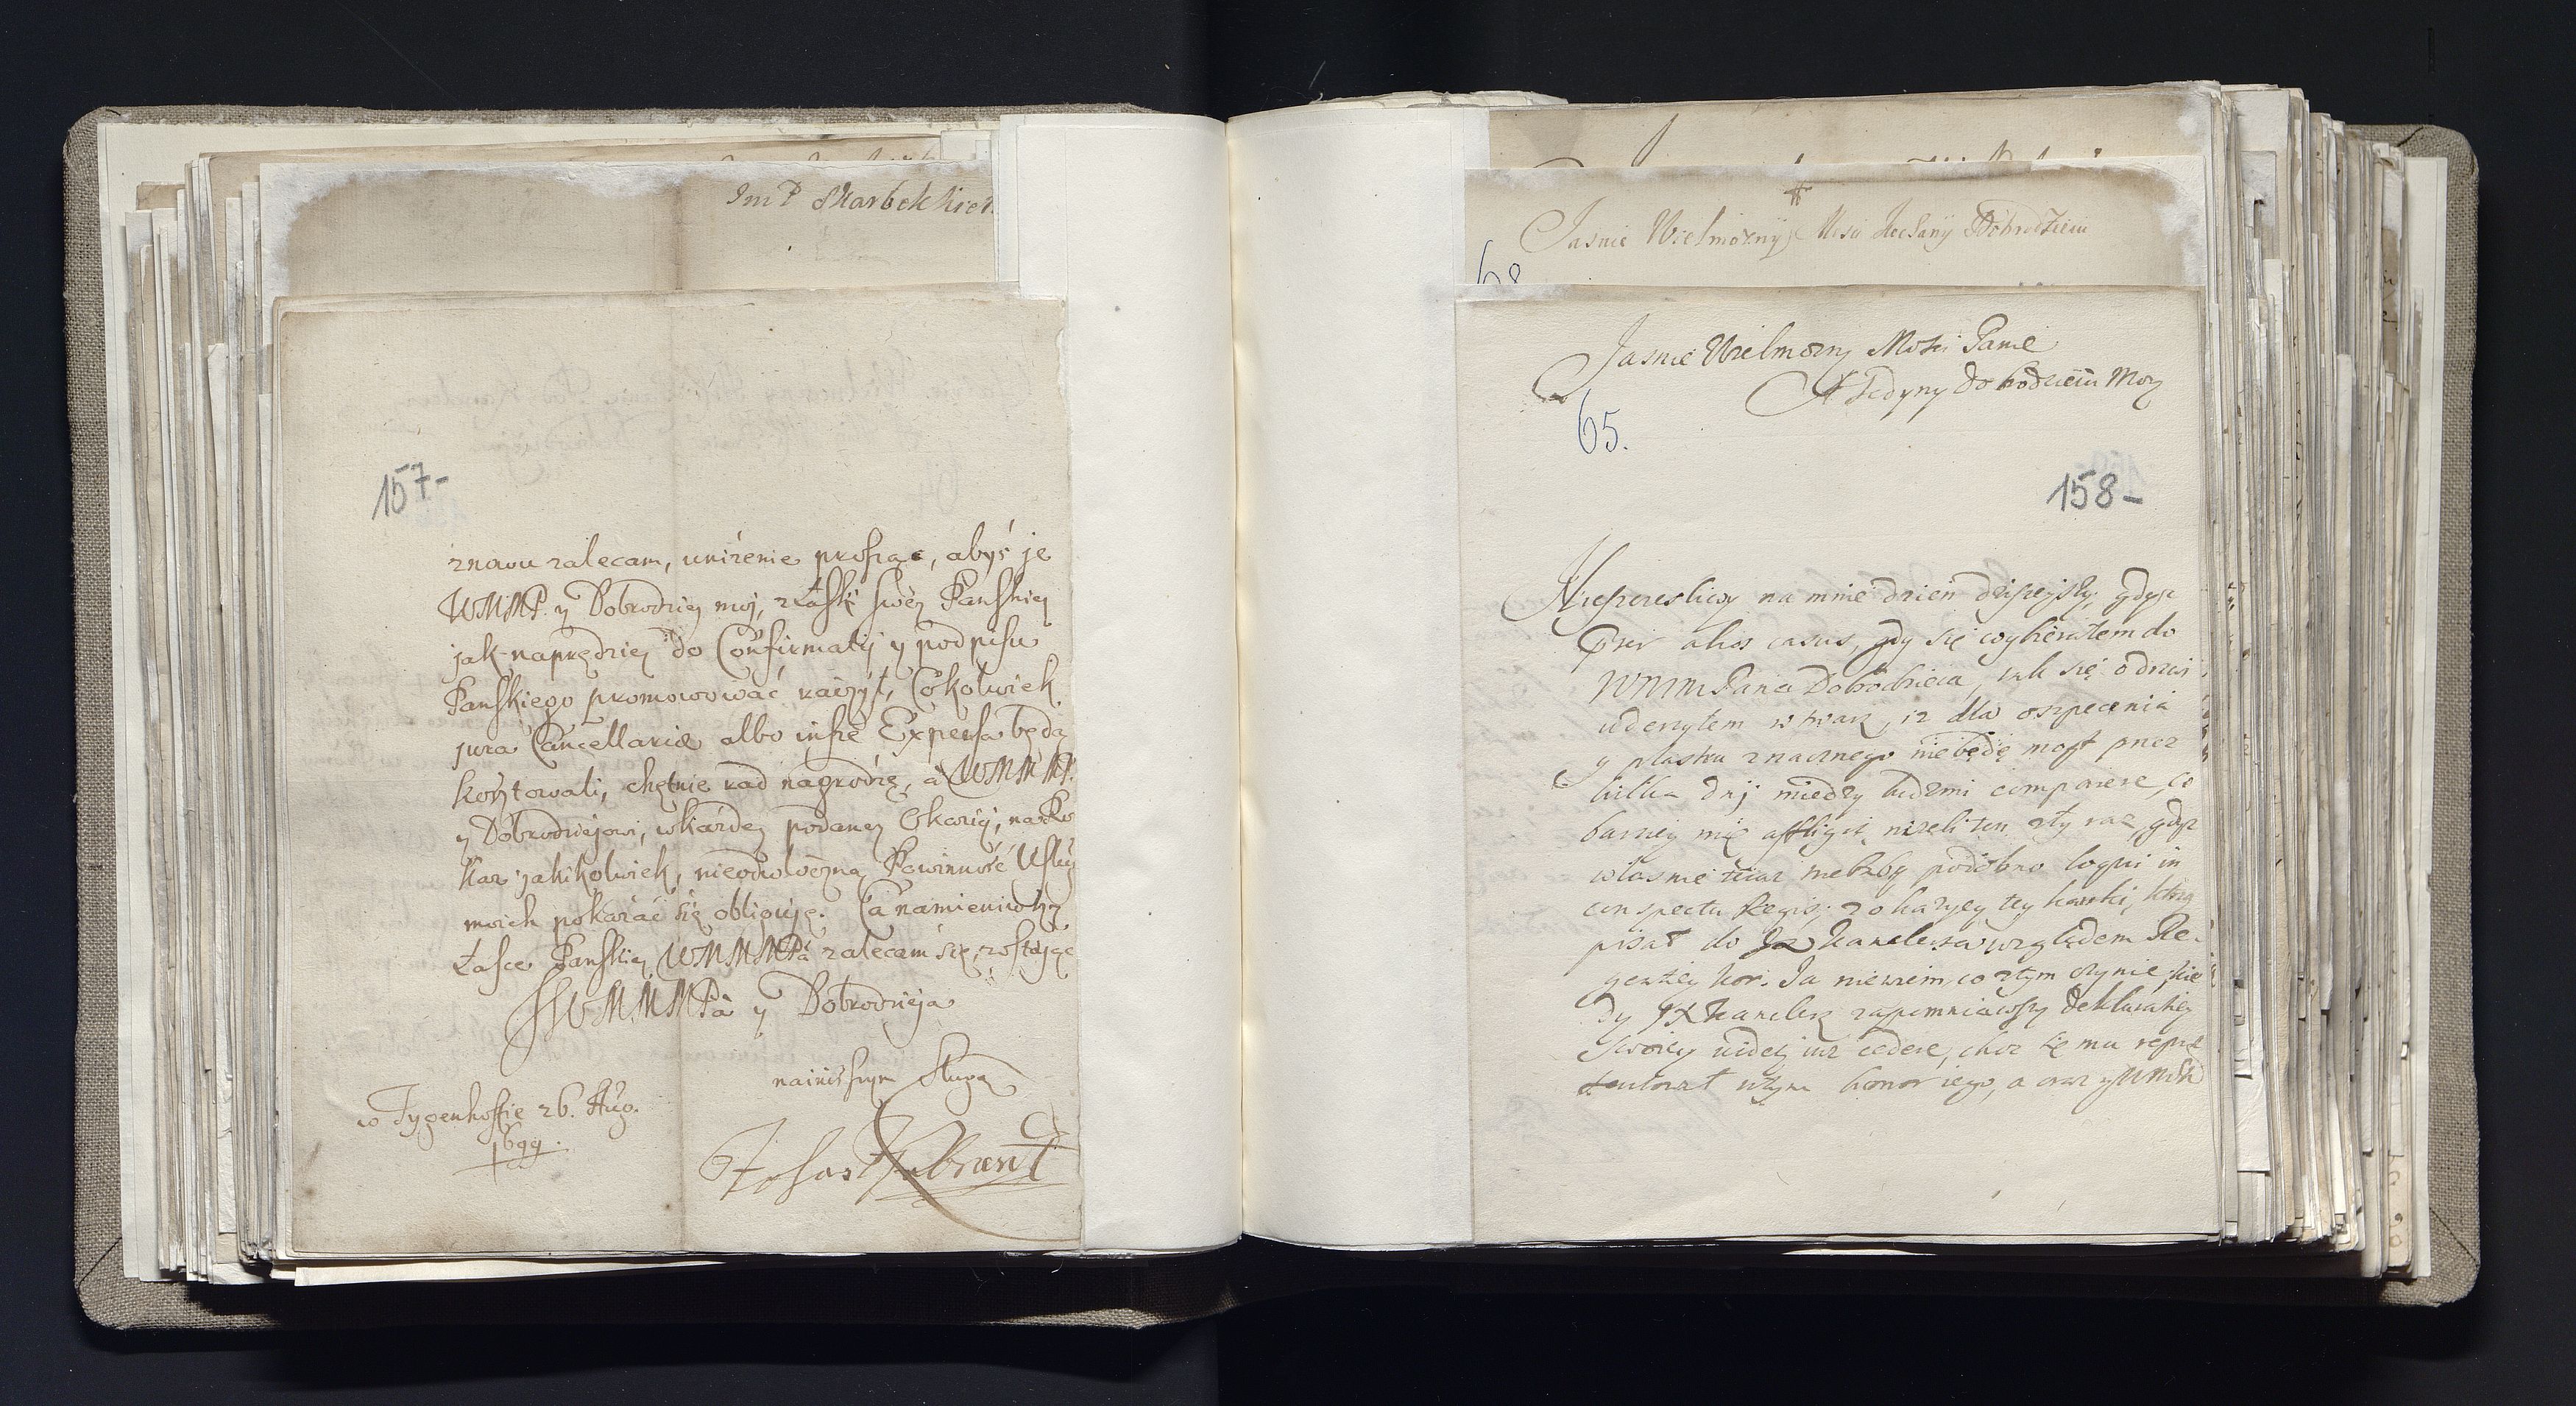 Im P Skarbek Kie
157-
znowu zalecam, uniżenie prosząc, abyś je
WMMP. y Dobrodziey moj, z łaski swey Panskiey
jak-naprędziey do Confirmatij y podpisu
Panskiego promowować raczył, Cokolwiek
jura Cancellariæ albo insze Expensa będą
kosztowali, chętnie rad nagrodzę, a WMMMP.
y Dobrodziejowi, w każdey podaney Okazij, na
kaz jakikolwiek, nieodwłoczną Powinność Usług
moich pokazać się obliguję. Ca namieniwszy
Łasce Panskiey WMMMPa zalecam się, zostając
WMMMPa y Dobrodzieja
nainiszym Sługą
w Tygenhoffie 26. Aug.
1699.
Jasnie Wielmożny Mści Dobrodzieiu
68
Jasnie Wielmozny Mosci Panie
A Jedyny Dobrodzieiu Moy
65.
158-
Nieszczesliwy na mnie dzien dzisieyszy, gdysz
alios casus, gdy się wybierałem do
WMMPana Dobrodzieia, tak się o drzwi
uderzyłem w twarz, iz dla oszpecenia
y plastru znacznego niebędę mogł przez
kilka dnj miedzy ludzmi comparere, co
barziey mię affligit, nizeli ten zły raz, gdysz
własnie teraz podobno loqui in
conspectu Regis, z okazyey tey kartki, ktorą
pisał do JX Kanclerza względem Re-
gentiey Kor. Ja niewiem co z tym czynic, kie
dy JX Kanclerz zapomniawszy deklaratiey
swoiey widzę iuz cedere, choc ię mu repræ
sentował w tym honor iego, a oraz y